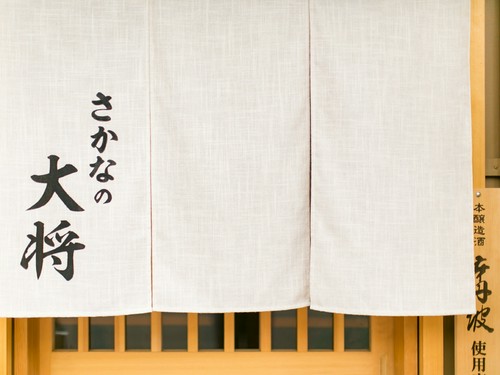 さかなの
大将
本醸造酒
使用